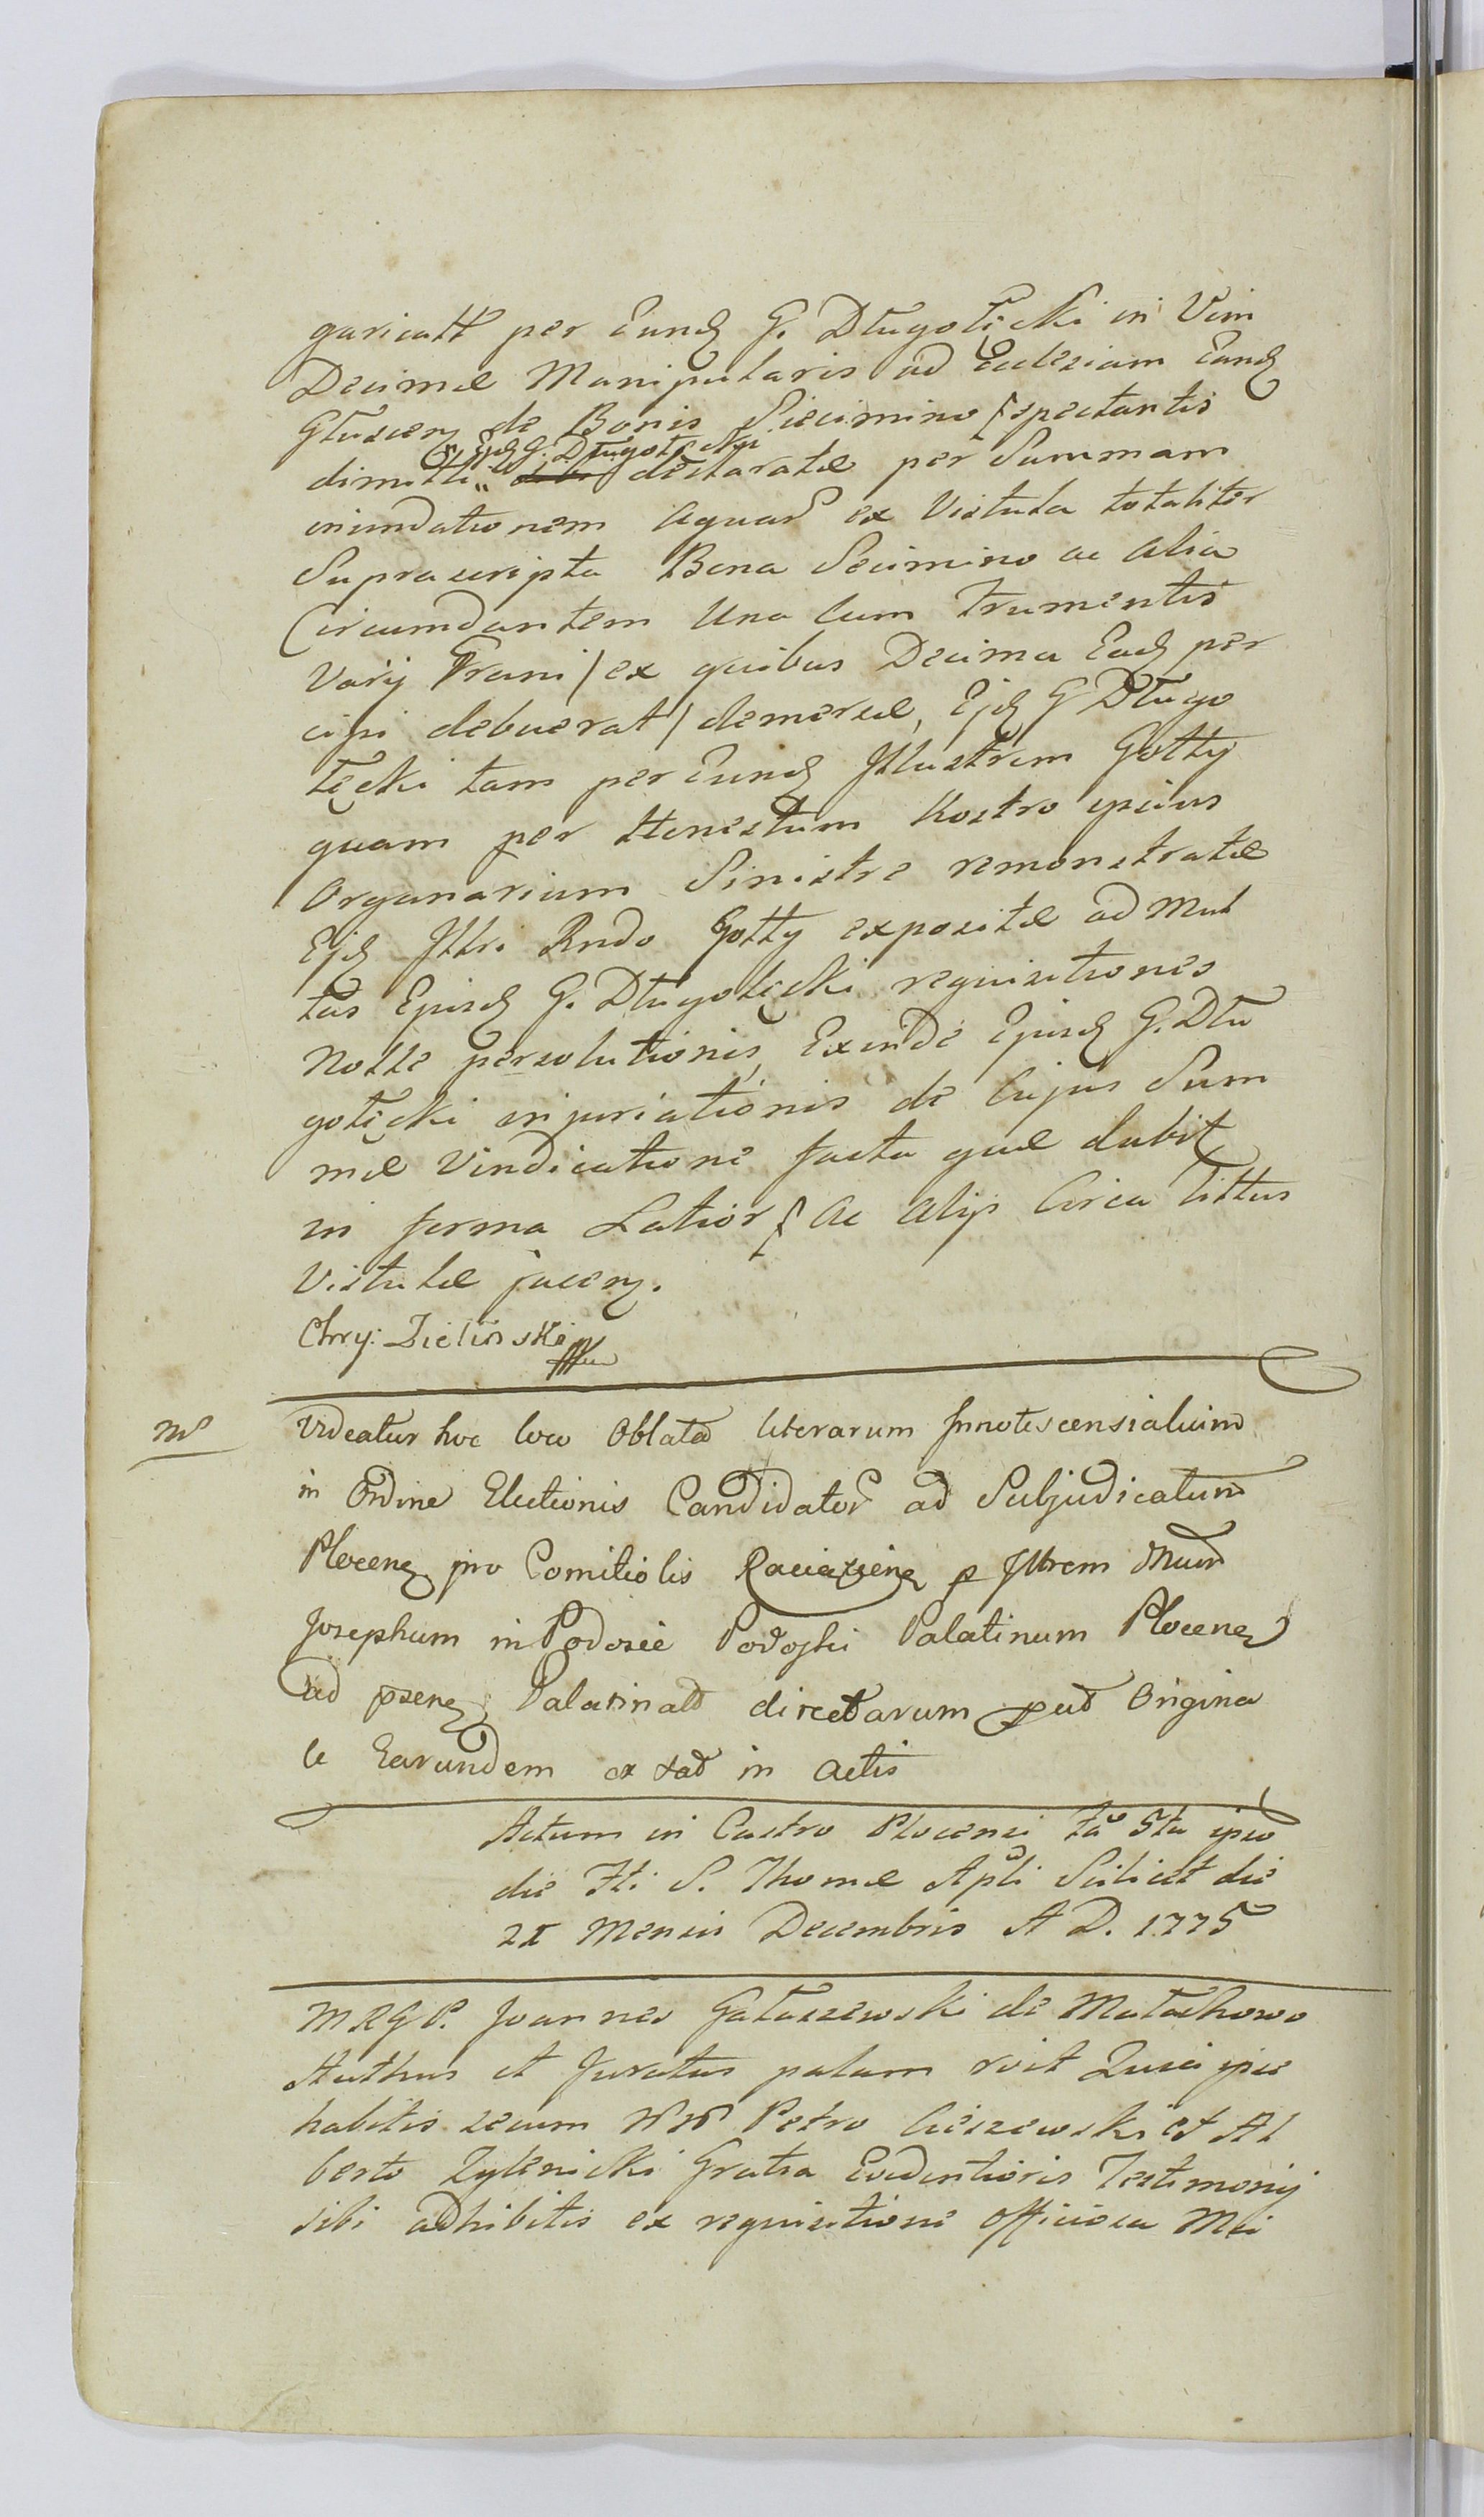 garicalt per Eund G. Długołęcki in Vim
Decimæ Manipularis ad Ecclesiam Eand
Głuscen de Bonis Siecimino spectantis
Ejd G. Długołęcki
dimitti declaratæ per Summam
inundationem Aquar ex Vistula totaliter
Suprascripta Bona Secimino ac alia
Circumdantem Una Cum Frumentis
Varij Grani / ex quibus Decima Ead per
cipi debuerat / demersæ, Ejd G Długo
łęcki tam per Eund Jllustrem Gotty
quam per Honestum Kostro ipsius
Organarium Sinistre remonstratæ
Ejd Jllri Rndo Gotty expositæ ad Mul
tas Ejusd G. Długołęcki requisitiones
Nolle persolutionis, Exinde Ejusd G. Dłu
gołęcki injuriationis de Cujus Sum
mæ Vindicatione facta quæ dabit
in forma Latior Ac Alijs Circa littus
Vistulæ jacen.
Chry: Zieliński
Videatur hoc loco Oblata literarum Jnnotescensialium
in Ordine Electionis Candidator ad Subjudicatum
Plocen pro Comitiolis Raciążen p Jllrem Mnum
Josephum in Podosie Podoski Palatinum Plocen
ad psen Palatinatt directarum put Origina
le Earundem extat in Actis
Actum in Castro Plocensi fa 5ta ipso
die fti S. Thomæ Apli Scilicet die
21 Mensis Decembris A D. 1775
MRGP. Joannes Gałaszewski de Małachowo
Authus et Juratus palam rvit Quia ipse
habitis secum NN Petro Cieszewski et Al
berto Zylenicki Gratia Evidentioris Testimonij
sibi adhibitis ex requisitione officiosa Mci